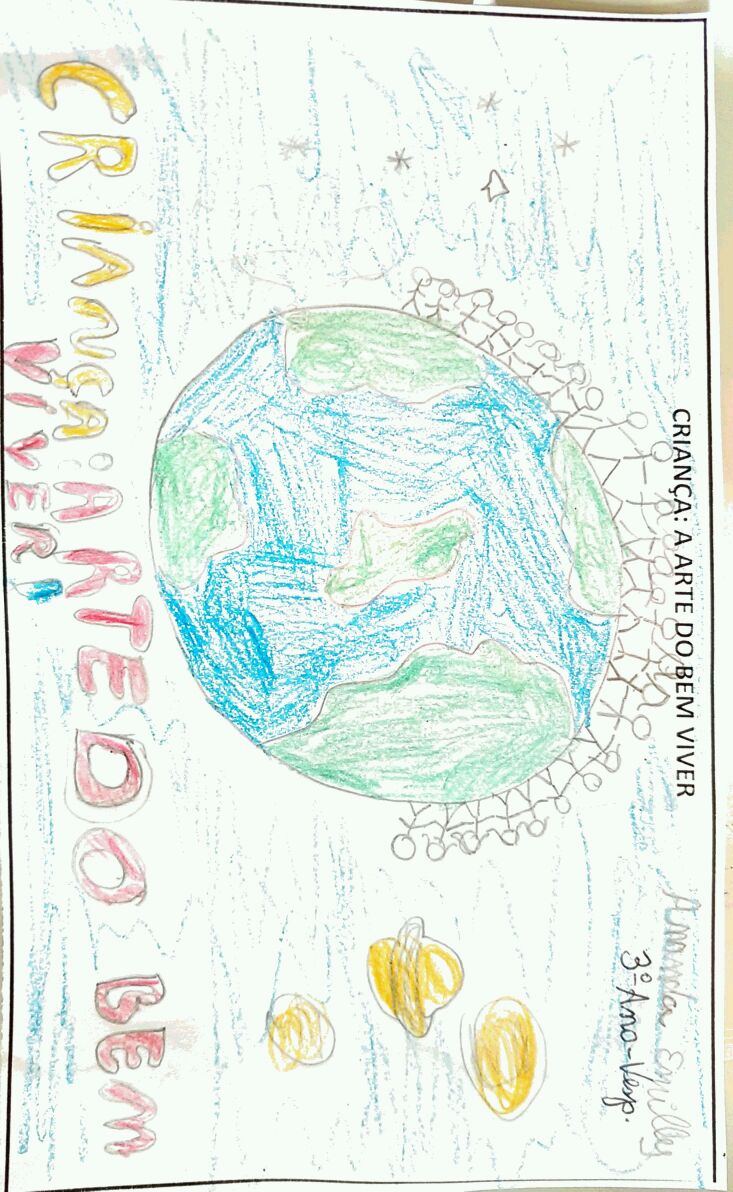 CRIANÇA: A ARTE DO BEM VIVER
3º Ano-Vesp.
CRiANÇA: ARTE DO BEM
ViVER!